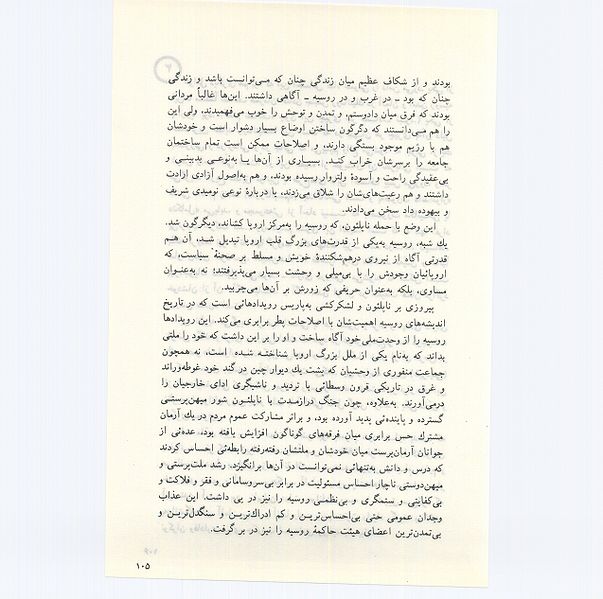 بودند و از شکاف عظیم میان زندگی چنان که می‌توانست باشد و زندگی
چنان که بود ـ در غرب و در روسیه ـ آگاهی داشتند. این‌ها غالباً مردانی
بودند که فرق میان دادوستم، و تمدن و توحش را خوب می‌فهمیدند، ولی این
را هم می‌دانستند که دگرگون ساختن اوضاع بسیار دشوار است و خودشان
هم با رژیم موجود بستگی دارند، و اصلاحات ممکن است تمام ساختمان
جامعه را برسرشان خراب کند. بسیاری از آن‌ها یا به‌نوعی بدبینی و
بی‌عقیدگی راحت و آسودهٔ ولتروار رسیده بودند، و هم به‌اصول آزادی ارادت
داشتند و هم رعیت‌های‌شان را شلاق می‌زدند، یا دربارهٔ نوعی نومیدی شریف
و بیهوده داد سخن می‌دادند.
این وضع با حمله ناپلئون، که روسیه را به‌مرکز اروپا کشاند، دیگرگون شد.
یك شبه، روسیه به‌یکی از قدرت‌های بزرگ قلب اروپا تبدیل شد، آن هم
قدرتی آگاه از نیروی درهم‌شکنندهٔ خویش و مسلط بر صحنهٔ سیاست، که
اروپائیان وجودش را با بی‌میلی و وحشت بسیار می‌پذیرفتند؛ نه به‌عنوان
مساوی، بلکه به‌عنوان حریفی که زورش بر آن‌ها می‌چربید.
پیروزی بر ناپلئون و لشکرکشی به‌پاریس رویدادهائی است که در تاریخ
اندیشه‌های روسیه اهمیت‌شان با اصلاحات پطر برابری می‌کند. این رویدادها
روسیه را از وحدت‌ملی‌خود آگاه ساخت و او را بر این داشت که خود را ملتی
بداند که به‌نام یکی از ملل بزرگ اروپا شناخته شده است، نه همچون
جماعت منفوری از وحشیان که پشت یك دیوار چین در گند خود غوطه‌وراند
و غرق در تاریکی قرون وسطائی با تردید و ناشیگری ادای خارجیان را
درمی‌آورند. به‌علاوه، چون جنگ درازمدت با ناپلئون شور میهن‌پرستی
گسترده و پاینده‌ئی پدید آورده بود، و براثر مشارکت عموم مردم در یك آرمان
مشترك حس برابری میان فرقه‌های گوناگون افزایش یافته بود، عده‌ئی از
جوانان آرمان‌پرست میان خودشان و ملتشان رفته‌رفته رابطه‌ئی احساس کردند
که درس و دانش به‌تنهائی نمی‌توانست در آن‌ها برانگیزد. رشد ملت‌پرستی و
میهن‌دوستی ناچار احساس مسئولیت در برابر بی‌سروسامانی و فقر و فلاکت و
بی‌کفایتی و ستمگری و بی‌نظمی روسیه را نیز در پی داشت. این عذاب
وجدان عمومی حتی بی‌احساس‌ترین و کم ادراك‌ترین و سنگدل‌ترین و
بی‌تمدن‌ترین اعضای هیئت حاکمهٔ روسیه را نیز در بر گرفت.
۱۰۵